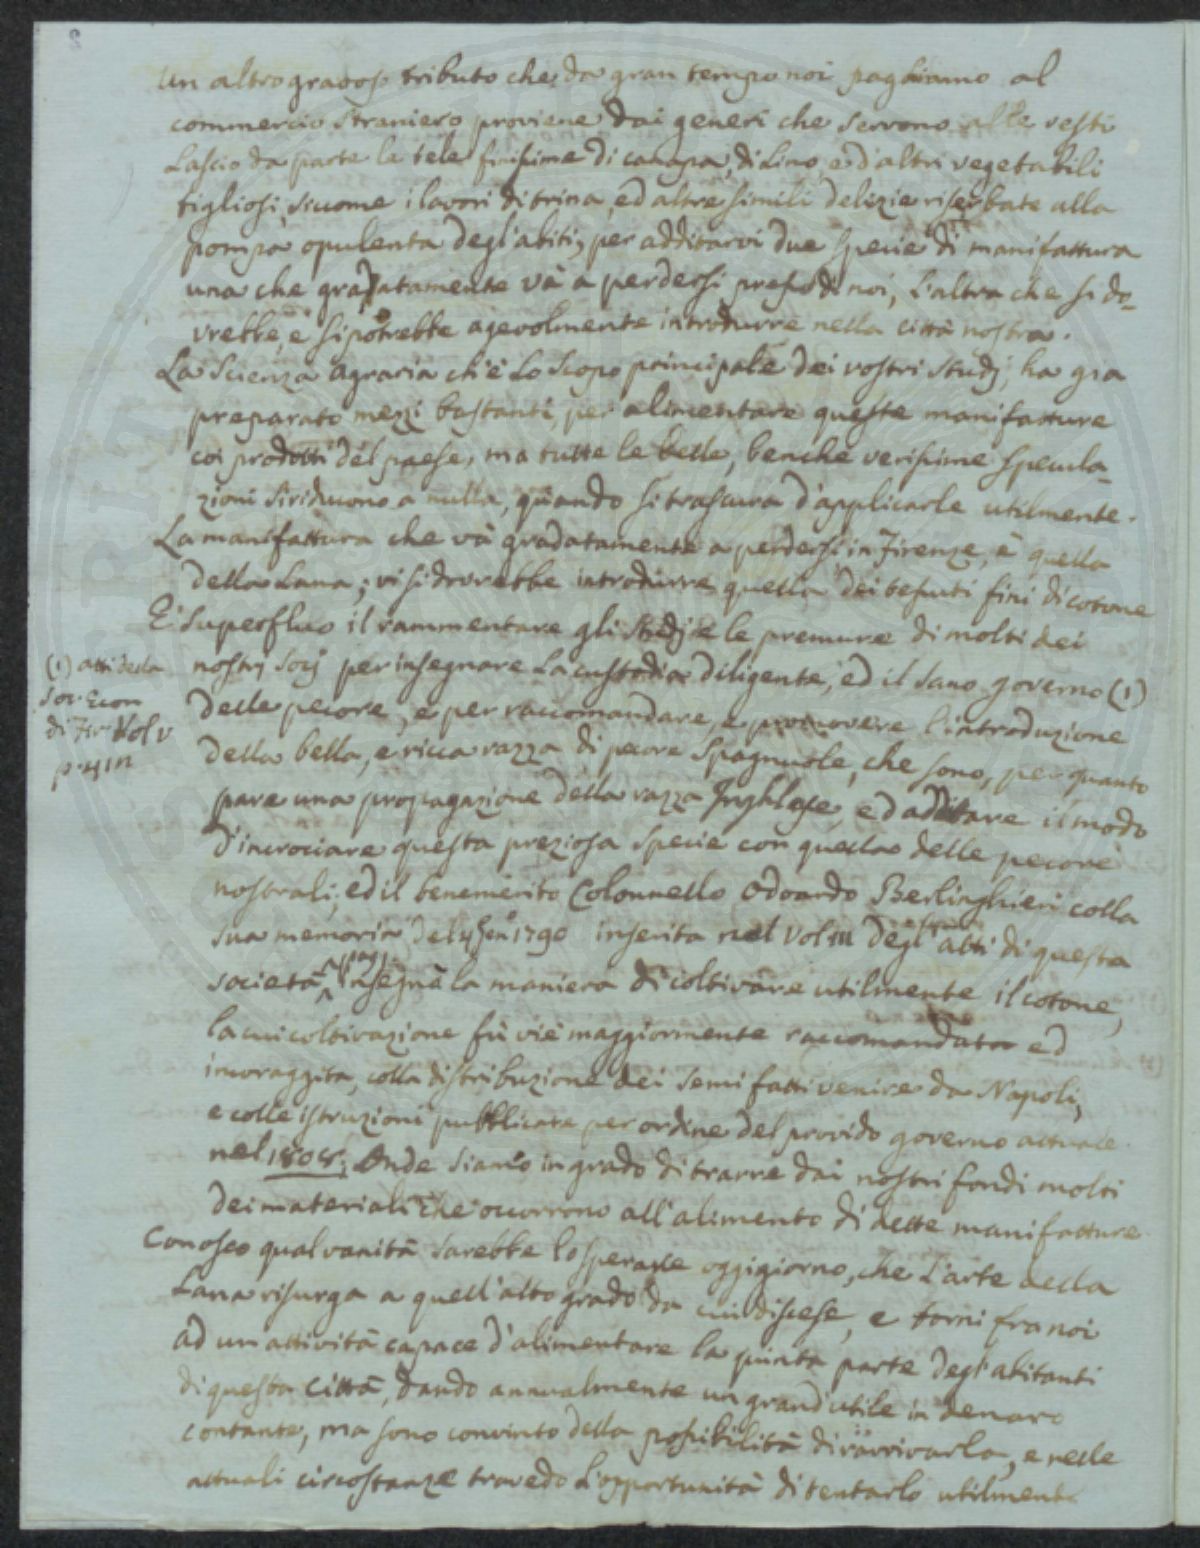 2
Un altro gravoso tributo che da gran tempo noi paghiamo al
commercio straniero proviene dai generi che servono alle vesti
Lascio da parte le tele finissime di canapa, di Lino, e d'altri vegetabili
tigliosi, siccome i lavori di trina, ed altre simili delizie riserbate alla
pompa opulenta degl'abiti, per additarvi due specie di manifattura
una che gradatamente và a perdersi presso di noi, l'altra che si do-
vrebbe, e si potrebbe agevolmente introdurre nella città nostra.
La Scienza agraria ch'è Lo Scopo principale dei vostri studj, ha gia
preparato mezzi bastanti, per alimentare queste manifatture
coi prodotti del paese, ma tutte le belle, benche verissime specula-
zioni si riducono a nulla, quando si trascura d'applicarle utilmente.
La manifattura che và gradatamente a perdersi in Firenze, è quella
della Lana; vi si dovrebbe introdurre quella dei tessuti fini di cotone
E' Superfluo il rammentare gli Studj e le premure di molti dei
nostri Socj per insegnare La custodia diligente, ed il sano governo (1)
delle pecore, e per raccomandare, e promovere l'introduzione
della bella, e ricca razza di pecore Spagnuole, che sono, per quanto
pare una propagazione della razza Inghlese, ed additare il modo
d'incrociare questa preziosa specie con quella delle pecore
nostrali; ed il benemerito Colonnello Odoardo Berlinghieri colla
sua memoria del 4 Gen.º 1790 inserita nel Vol III degl'atti di questa
società insegnà la maniera di coltivare utilmente il cotone,
la cui coltivazione fù viè maggiormente raccomandata ed
incoraggita, colla distribuzione dei semi fatti venire da Napoli,
e colle istruzioni pubblicate per ordine del provido governo attuale
nel 1808. Onde siamo in grado di trarre dai nostri fondi molti
dei materiali che occorrono all'alimento di dette manifatture
Conosco qual vanità sarebbe lo sperare oggigiorno, che L'arte della
Lana risurga a quell'alto grado da cui discese, e torni fra noi
ad un attività capace d'alimentare la quinta parte degl'abitanti
di questa città, dando annualmente un grand'utile in denaro
contante, ma sono convinto della possibilità di ravvivarla, e nelle
attuali circostanze travedo L'opportunità di tentarlo utilmente
(1) atti della
Soc. Econ
di Fir. Vol V